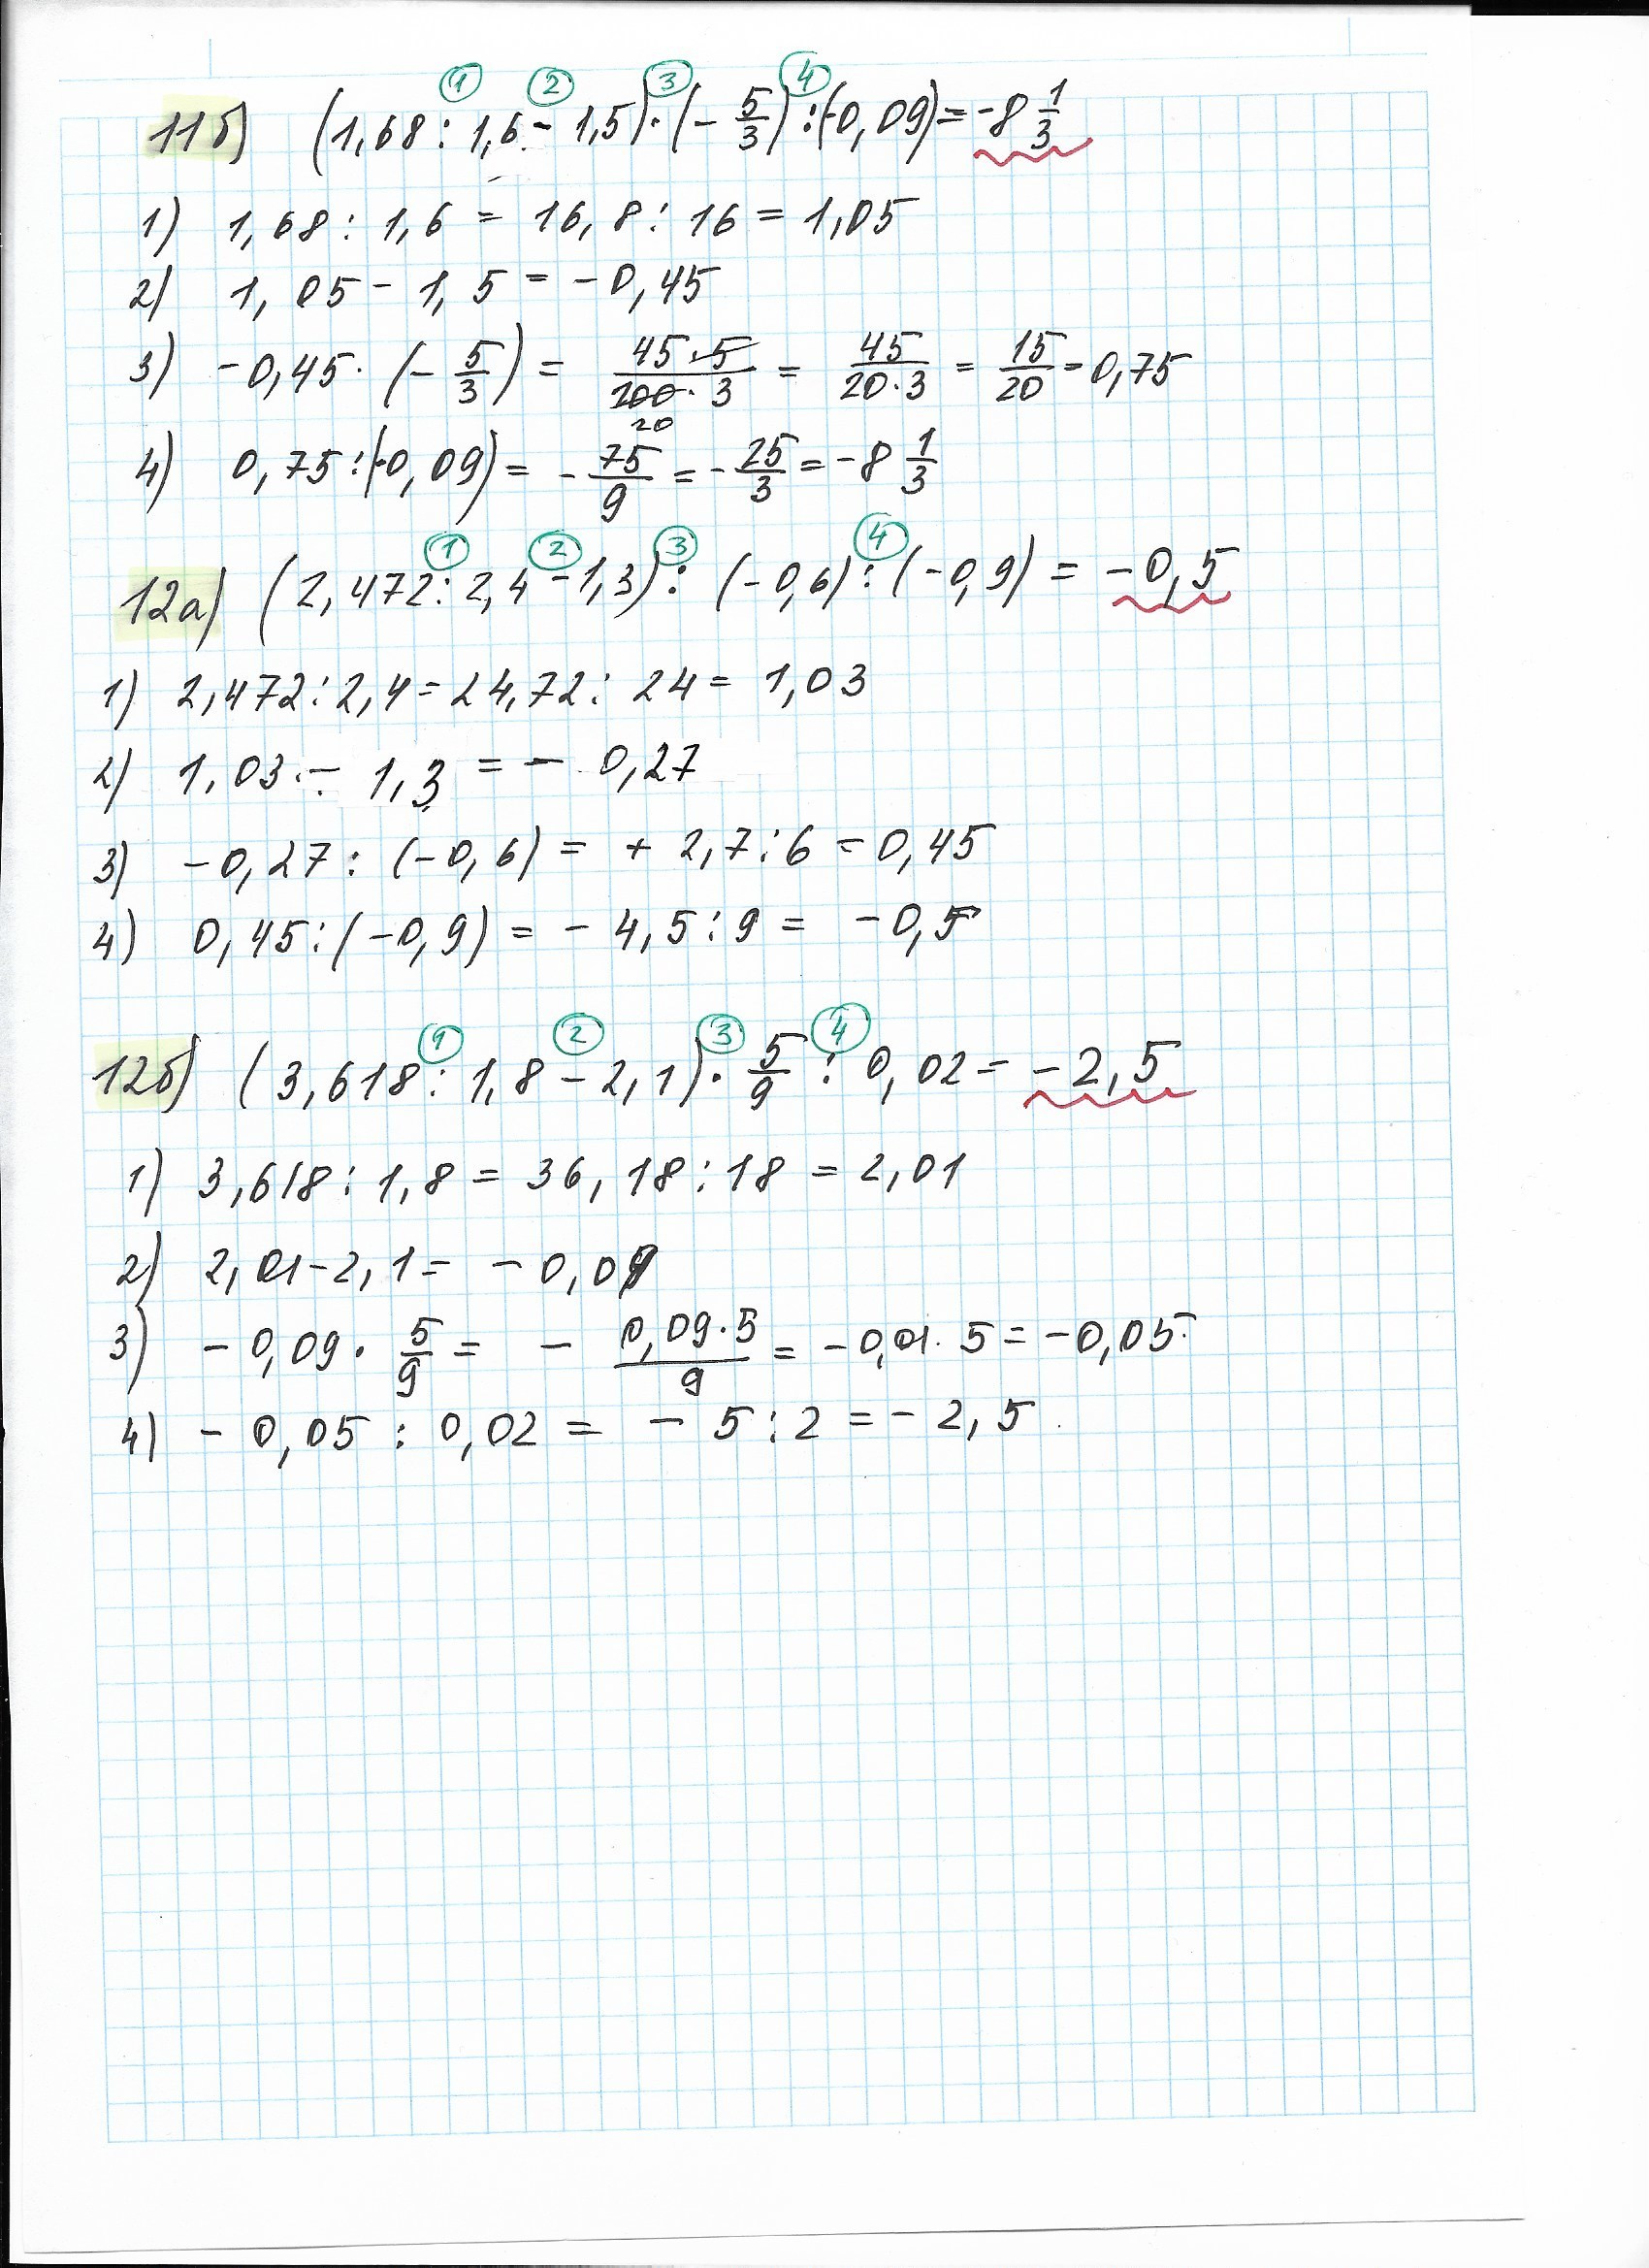 ① ② ③ ④
11б) (1,68 : 1,6 - 1,5) · (- 5/3) : (-0,09) = -8 1/3
1) 1,68 : 1,6 = 16,8 : 16 = 1,05
2) 1,05 - 1,5 = -0,45
3) -0,45 · (- 5/3) = 45·5/100·3 = 45/20·3 = 15/20 = 0,75
20
4) 0,75 : (-0,09) = - 75/9 = - 25/3 = -8 1/3
① ② ③ ④
12а) (2,472 : 2,4 - 1,3) : (-0,6) : (-0,9) = -0,5
1) 2,472 : 2,4 = 24,72 : 24 = 1,03
2) 1,03 - 1,3 = - 0,27
3) -0,27 : (-0,6) = + 2,7 : 6 = 0,45
4) 0,45 : (-0,9) = - 4,5 : 9 = -0,5
① ② ③ ④
12б) (3,618 : 1,8 - 2,1) · 5/9 : 0,02 = -2,5
1) 3,618 : 1,8 = 36,18 : 18 = 2,01
2) 2,01 - 2,1 = -0,09
3) -0,09 · 5/9 = - 0,09·5/9 = -0,01 · 5 = -0,05
4) -0,05 : 0,02 = - 5 : 2 = -2,5